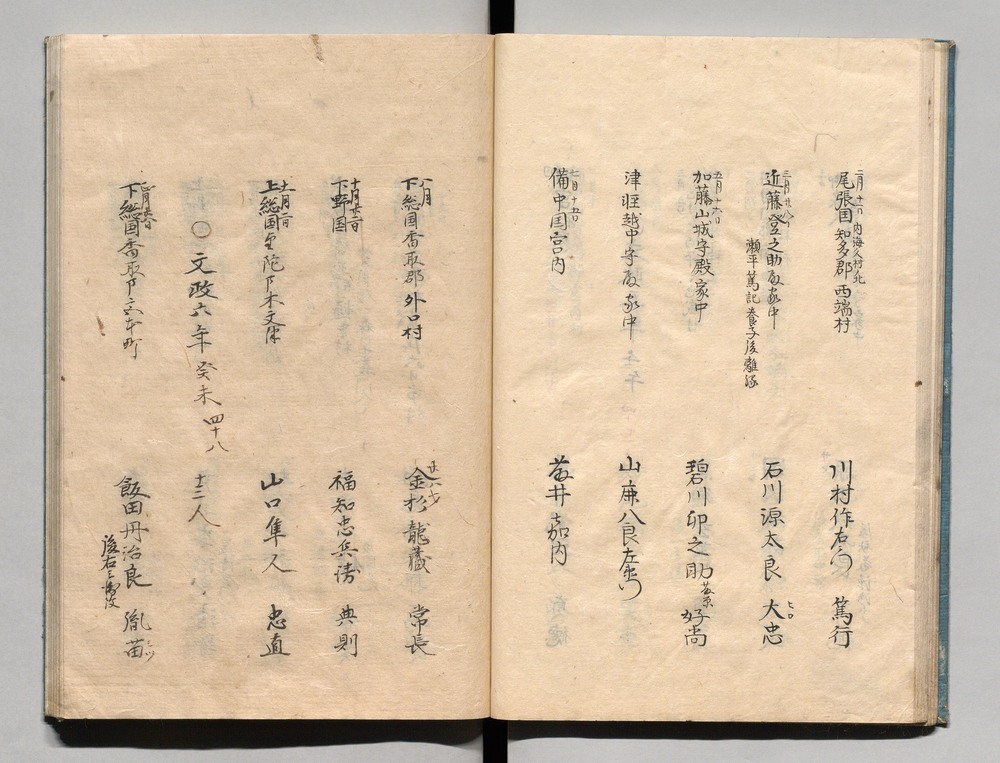 二月十一日 内海久村ノ北
尾張国知多郡西端村
川村作右衛門 篤行
三月廿八日
近藤登之助殿家中
瀬平篤記養子後離縁
石川源太良 大忠
ヒロ
五月十六日
加藤山城守殿家中
碧川卯之助 好尚
津軽越中守殿家中
山鹿八良左衛門
十五日
備中国宮内
藤井高内
八月
下総国香取郡外口村
廿六才
金杉龍蔵 常長
十月廿二日
下野国
福知忠兵衛 典則
十一月二日
上総国
山口隼人 忠直
〇文政六年癸未 四十八
十二人
正月
下総国香取郡六本町
飯田丹治良 胤苗
ミツ
後右